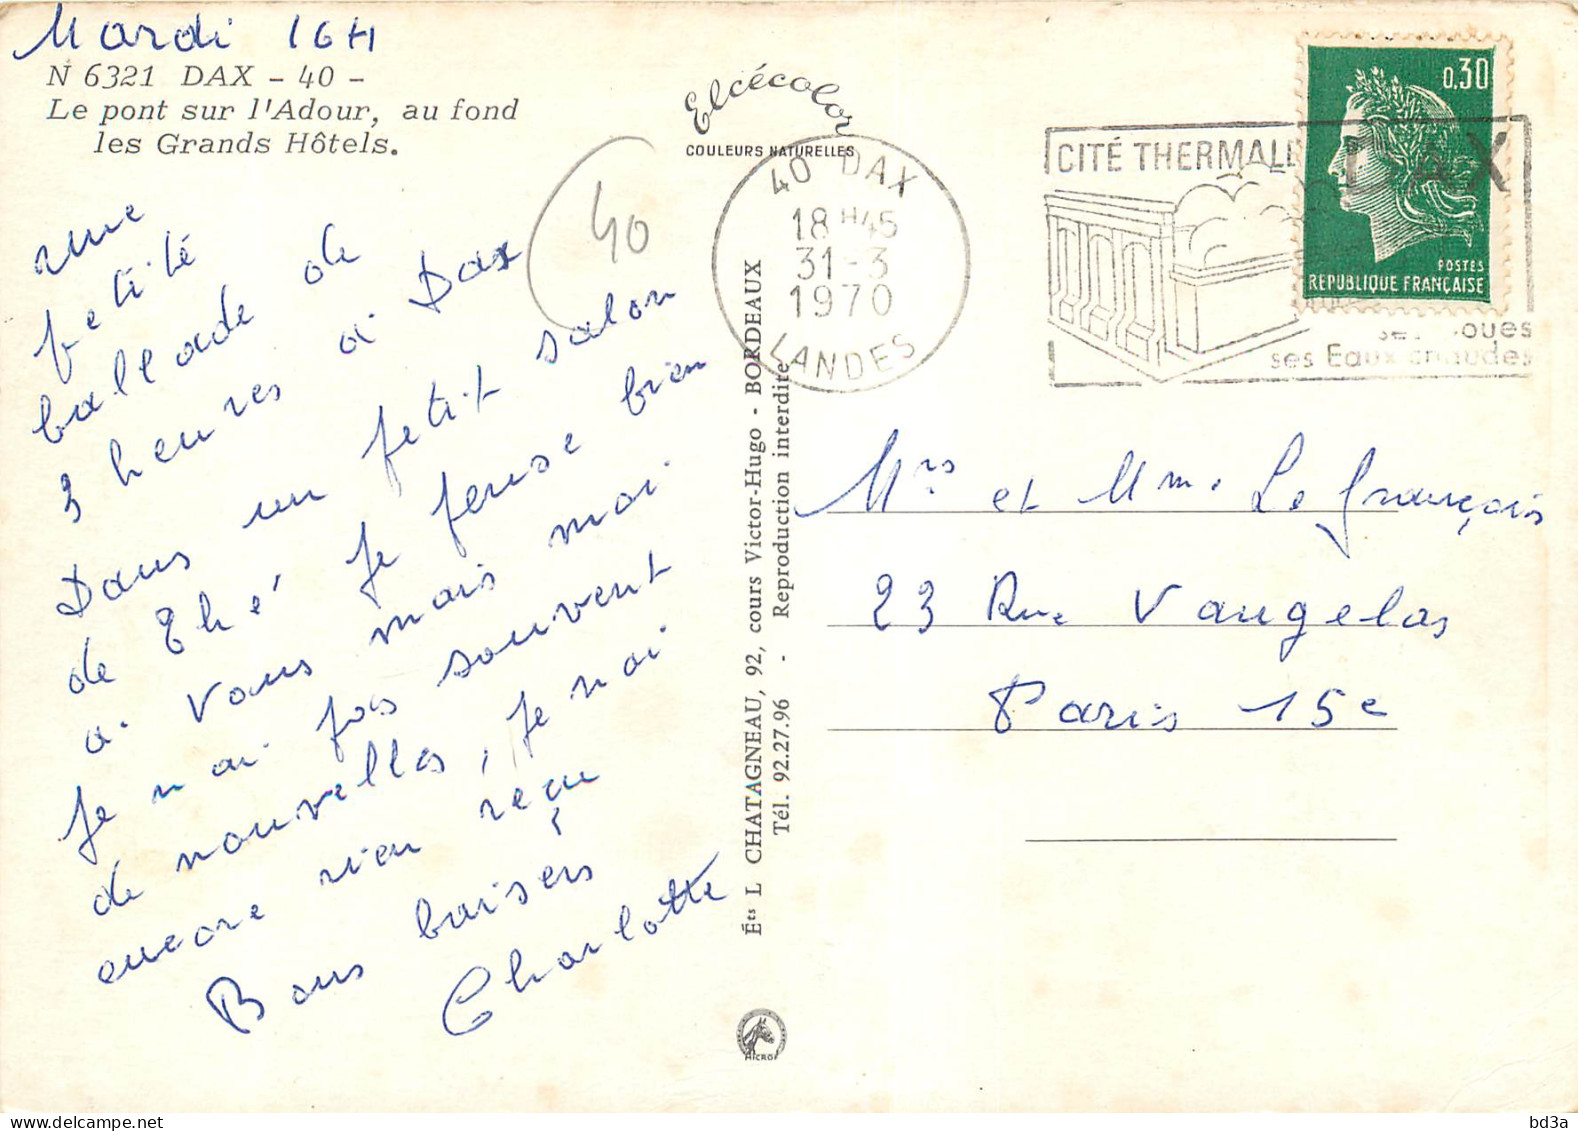 Mardi 16H
N 6321 DAX - 40 -
Le pont sur l'Adour, au fond
les Grands Hôtels.
Elcécolor
COULEURS NATURELLES
40
une
petite
ballade de
3 heures a Dax
Dans un petit salon
de thé je pense bien
a vous mais moi
Je n ai pas souvent
de nouvelles, je n ai
encore rien reçu
Bons baisers
Charlotte
40 DAX
18 H45
31-3
1970
LANDES
CITÉ THERMALE DAX
ses Boues
ses Eaux chaudes
0,30
POSTES
REPUBLIQUE FRANÇAISE
Éts L CHATAGNEAU, 92, cours Victor-Hugo - BORDEAUX
Tél. 92.27.96 - Reproduction interdite
Mrs et Mme. Le françois
23 Rue Vaugelas
Paris 15e
MICRO
bd3a